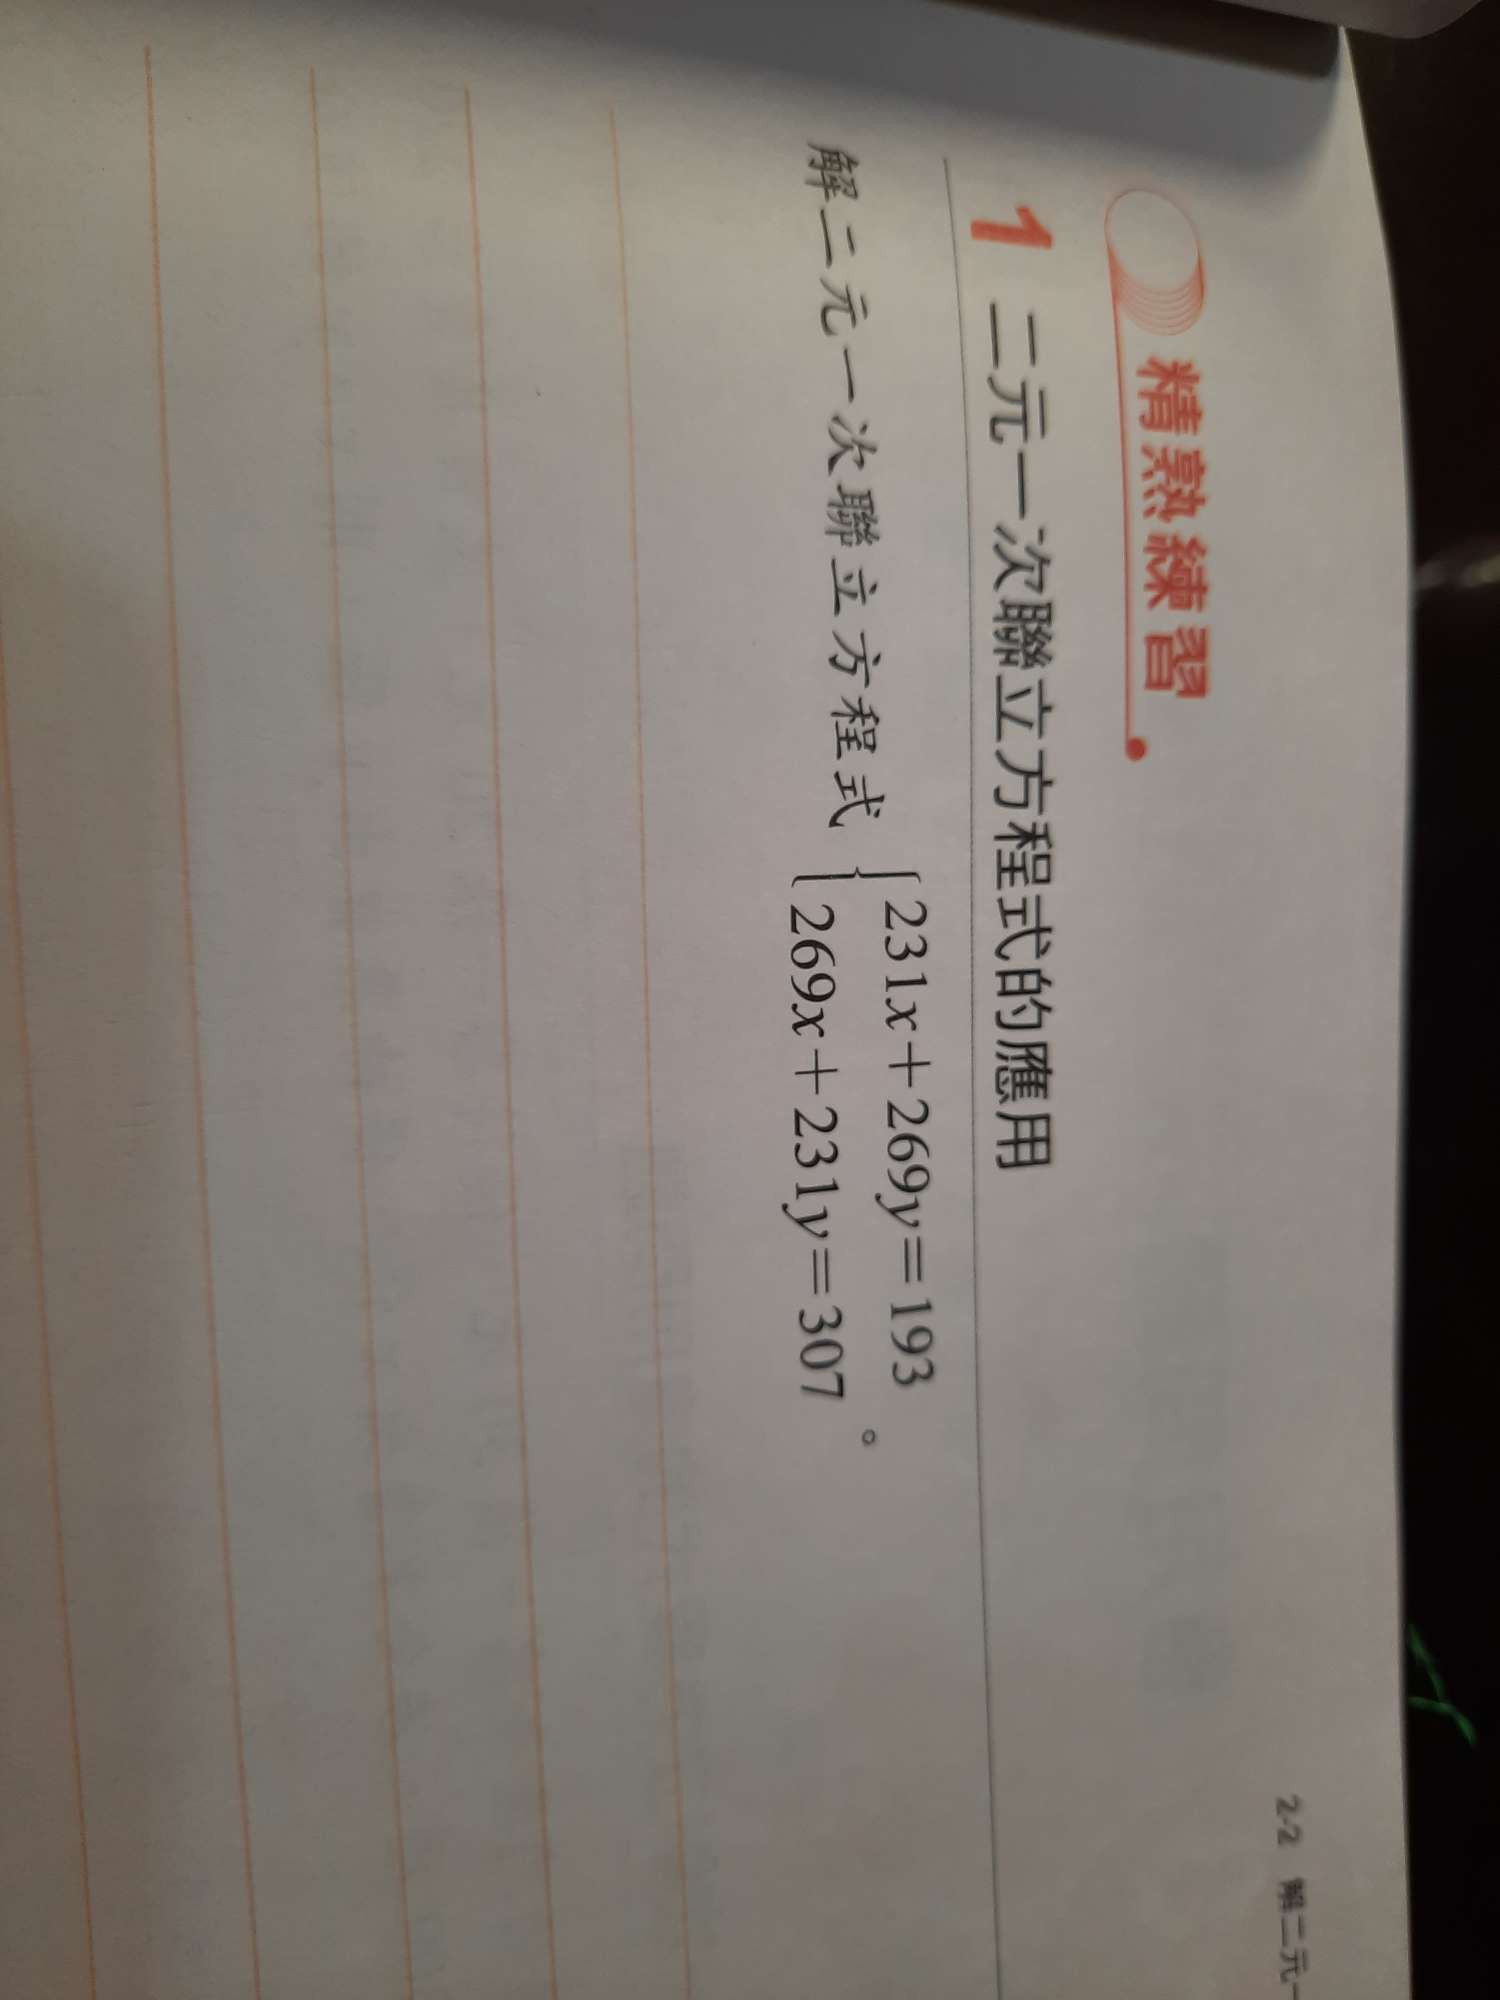 2-2 解二元一
精熟練習
1 二元一次聯立方程式的應用
231x+269y=193
解二元一次聯立方程式{ 。
269x+231y=307